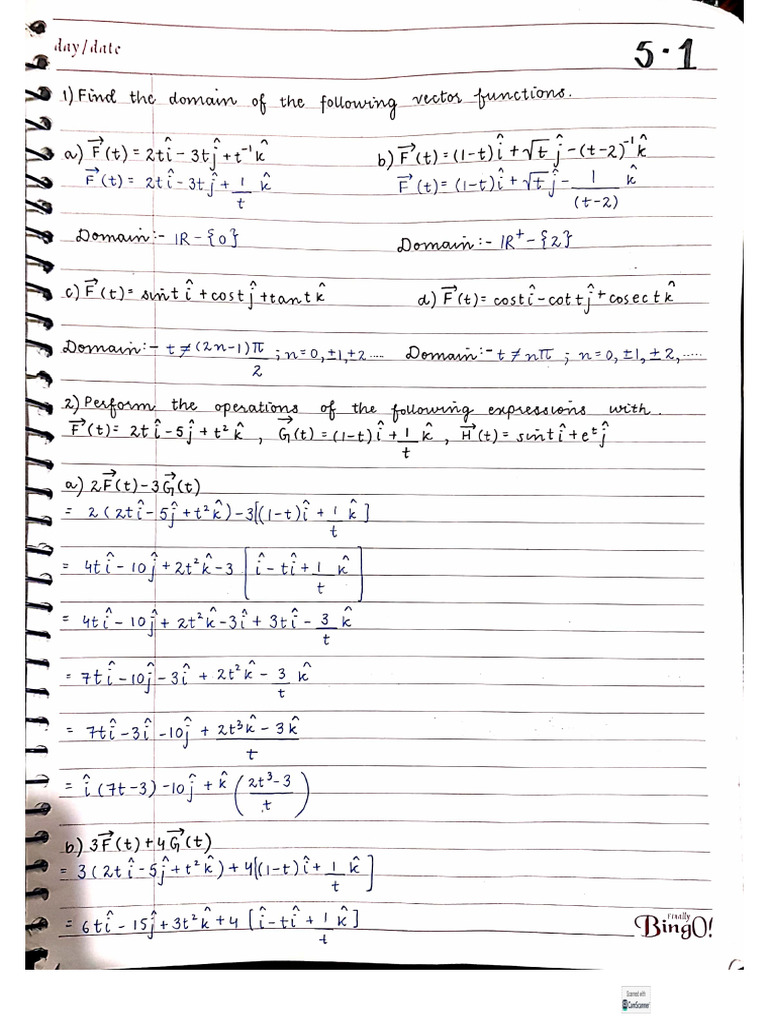 day/date
5.1
1) Find the domain of the following vector functions.
a) F⃗(t) = 2tî - 3tĵ + t⁻¹k̂    b) F⃗(t) = (1-t)î + √t ĵ - (t-2)⁻¹k̂
F⃗(t) = 2tî - 3tĵ + 1/t k̂    F⃗(t) = (1-t)î + √t ĵ - 1/(t-2) k̂
Domain:- IR - {0}    Domain:- IR⁺ - {2}
c) F⃗(t) = sint î + cost ĵ + tant k̂    d) F⃗(t) = cost î - cott ĵ + cosect k̂
Domain:- t ≠ (2n-1)π/2 ; n = 0, ±1, ±2 .....    Domain:- t ≠ nπ ; n = 0, ±1, ±2, .....
2) Perform the operations of the following expressions with.
F⃗(t) = 2tî - 5ĵ + t²k̂ , G⃗(t) = (1-t)î + 1/t k̂ , H⃗(t) = sint î + eᵗĵ
a) 2F⃗(t) - 3G⃗(t)
= 2(2tî - 5ĵ + t²k̂) - 3[(1-t)î + 1/t k̂]
= 4tî - 10ĵ + 2t²k̂ - 3 [î - tî + 1/t k̂]
= 4tî - 10ĵ + 2t²k̂ - 3î + 3tî - 3/t k̂
= 7tî - 10ĵ - 3î + 2t²k̂ - 3/t k̂
= 7tî - 3î - 10ĵ + (2t³k̂ - 3k̂)/t
= î(7t-3) - 10ĵ + k̂ ((2t³-3)/t)
b) 3F⃗(t) + 4G⃗(t)
= 3(2tî - 5ĵ + t²k̂) + 4[(1-t)î + 1/t k̂]
= 6tî - 15ĵ + 3t²k̂ + 4 [î - tî + 1/t k̂]
Finally
BingO!
Scanned with
CamScanner